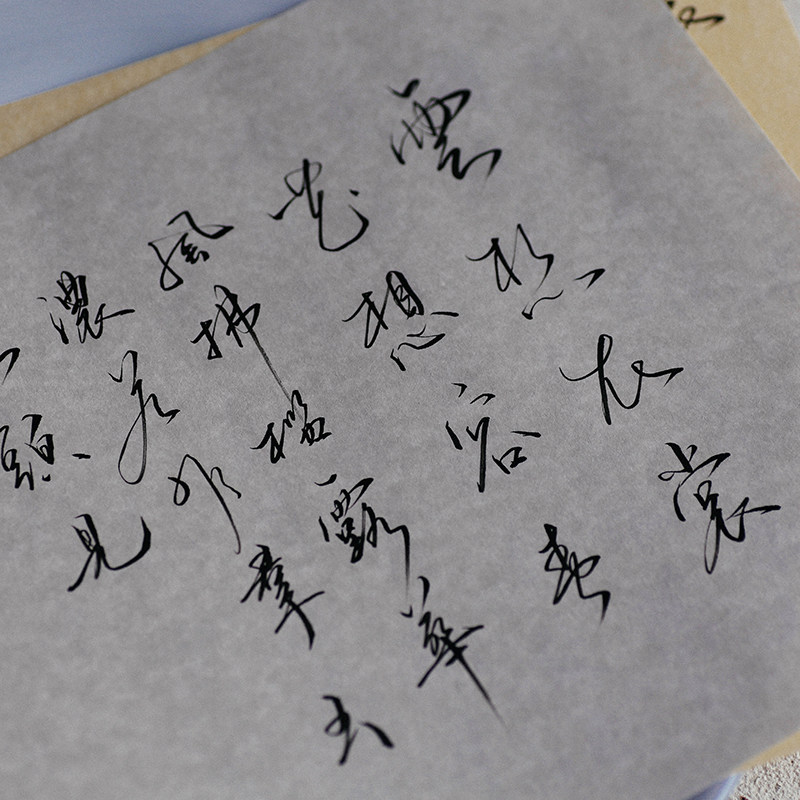 雲想衣裳
花想容春
風拂檻露華
濃若非群玉
頭見